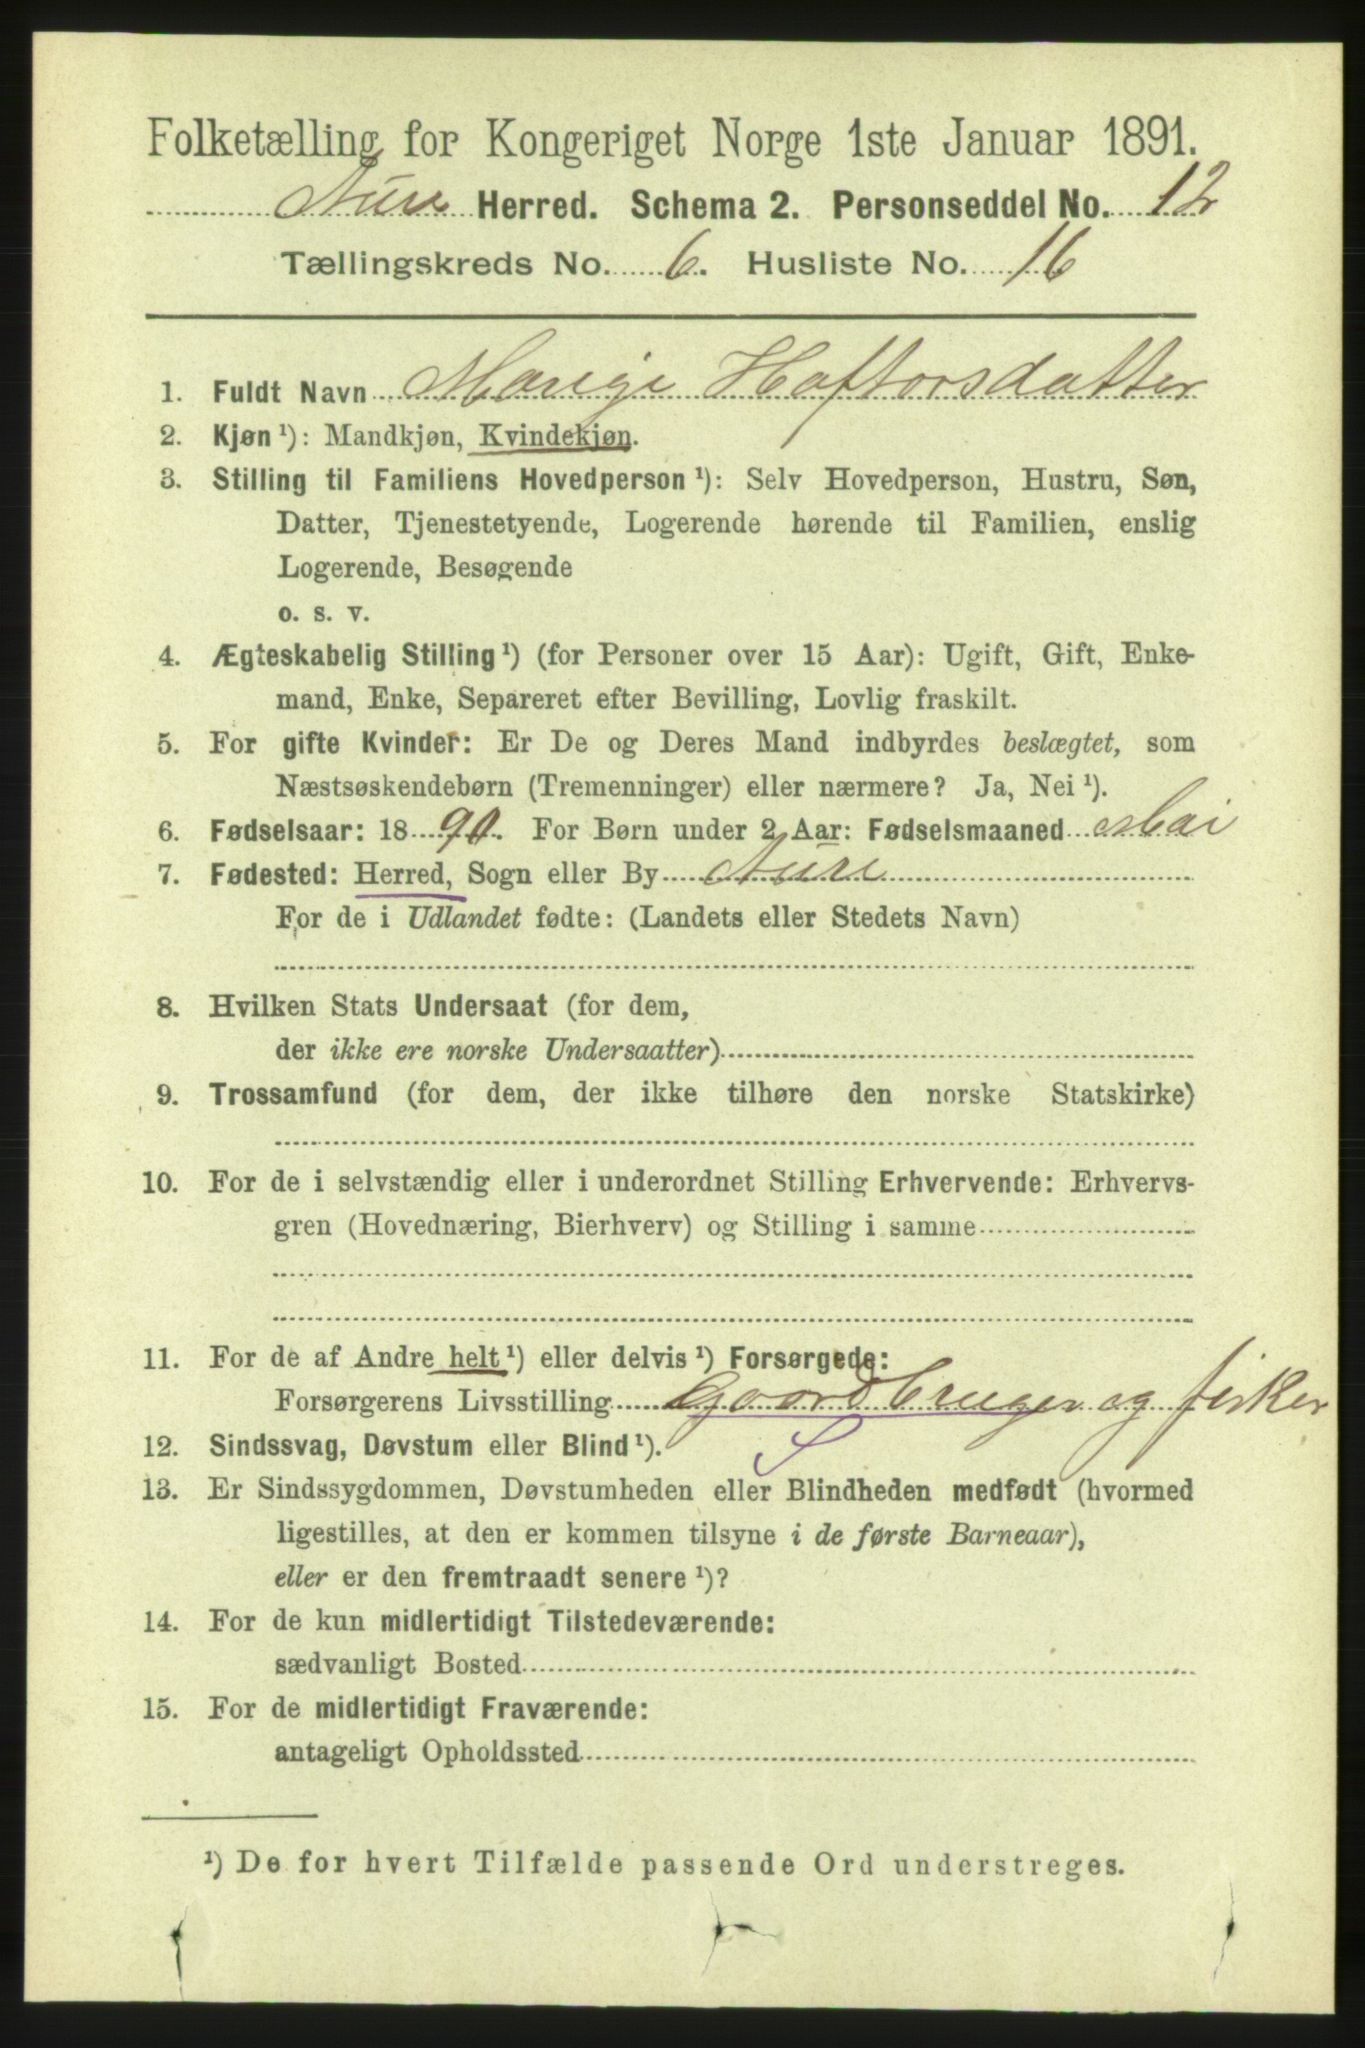 Folketælling for Kongeriget Norge 1ste Januar 1891.
Aure Herred. Schema 2. Personseddel No. 12
Tællingskreds No. 6. Husliste No. 16
1. Fuldt Navn Marije Haftorsdatter
2. Kjøn ¹): Mandkjøn, Kvindekjøn.
3. Stilling til Familiens Hovedperson ¹): Selv Hovedperson, Hustru, Søn,
Datter, Tjenestetyende, Logerende hørende til Familien, enslig
Logerende, Besøgende
o. s. v.
4. Ægteskabelig Stilling ¹) (for Personer over 15 Aar): Ugift, Gift, Enke-
mand, Enke, Separeret efter Bevilling, Lovlig fraskilt.
5. For gifte Kvinder: Er De og Deres Mand indbyrdes beslægtet, som
Næstsøskendebørn (Tremenninger) eller nærmere? Ja, Nei ¹).
6. Fødselsaar: 1890. For Børn under 2 Aar: Fødselsmaaned Mai
7. Fødested: Herred, Sogn eller By Aure
For de i Udlandet fødte: (Landets eller Stedets Navn)
8. Hvilken Stats Undersaat (for dem,
der ikke ere norske Undersaatter)
9. Trossamfund (for dem, der ikke tilhøre den norske Statskirke)
10. For de i selvstændig eller i underordnet Stilling Erhvervende: Erhvervs-
gren (Hovednæring, Bierhverv) og Stilling i samme
11. For de af Andre helt ¹) eller delvis ¹) Forsørgede:
Forsørgerens Livsstilling Gaardbruger og fisker
S
12. Sindssvag, Døvstum eller Blind ¹).
13. Er Sindssygdommen, Døvstumheden eller Blindheden medfødt (hvormed
ligestilles, at den er kommen tilsyne i de første Barneaar),
eller er den fremtraadt senere ¹)?
14. For de kun midlertidigt Tilstedeværende:
sædvanligt Bosted
15. For de midlertidigt Fraværende:
antageligt Opholdssted
¹) De for hvert Tilfælde passende Ord understreges.